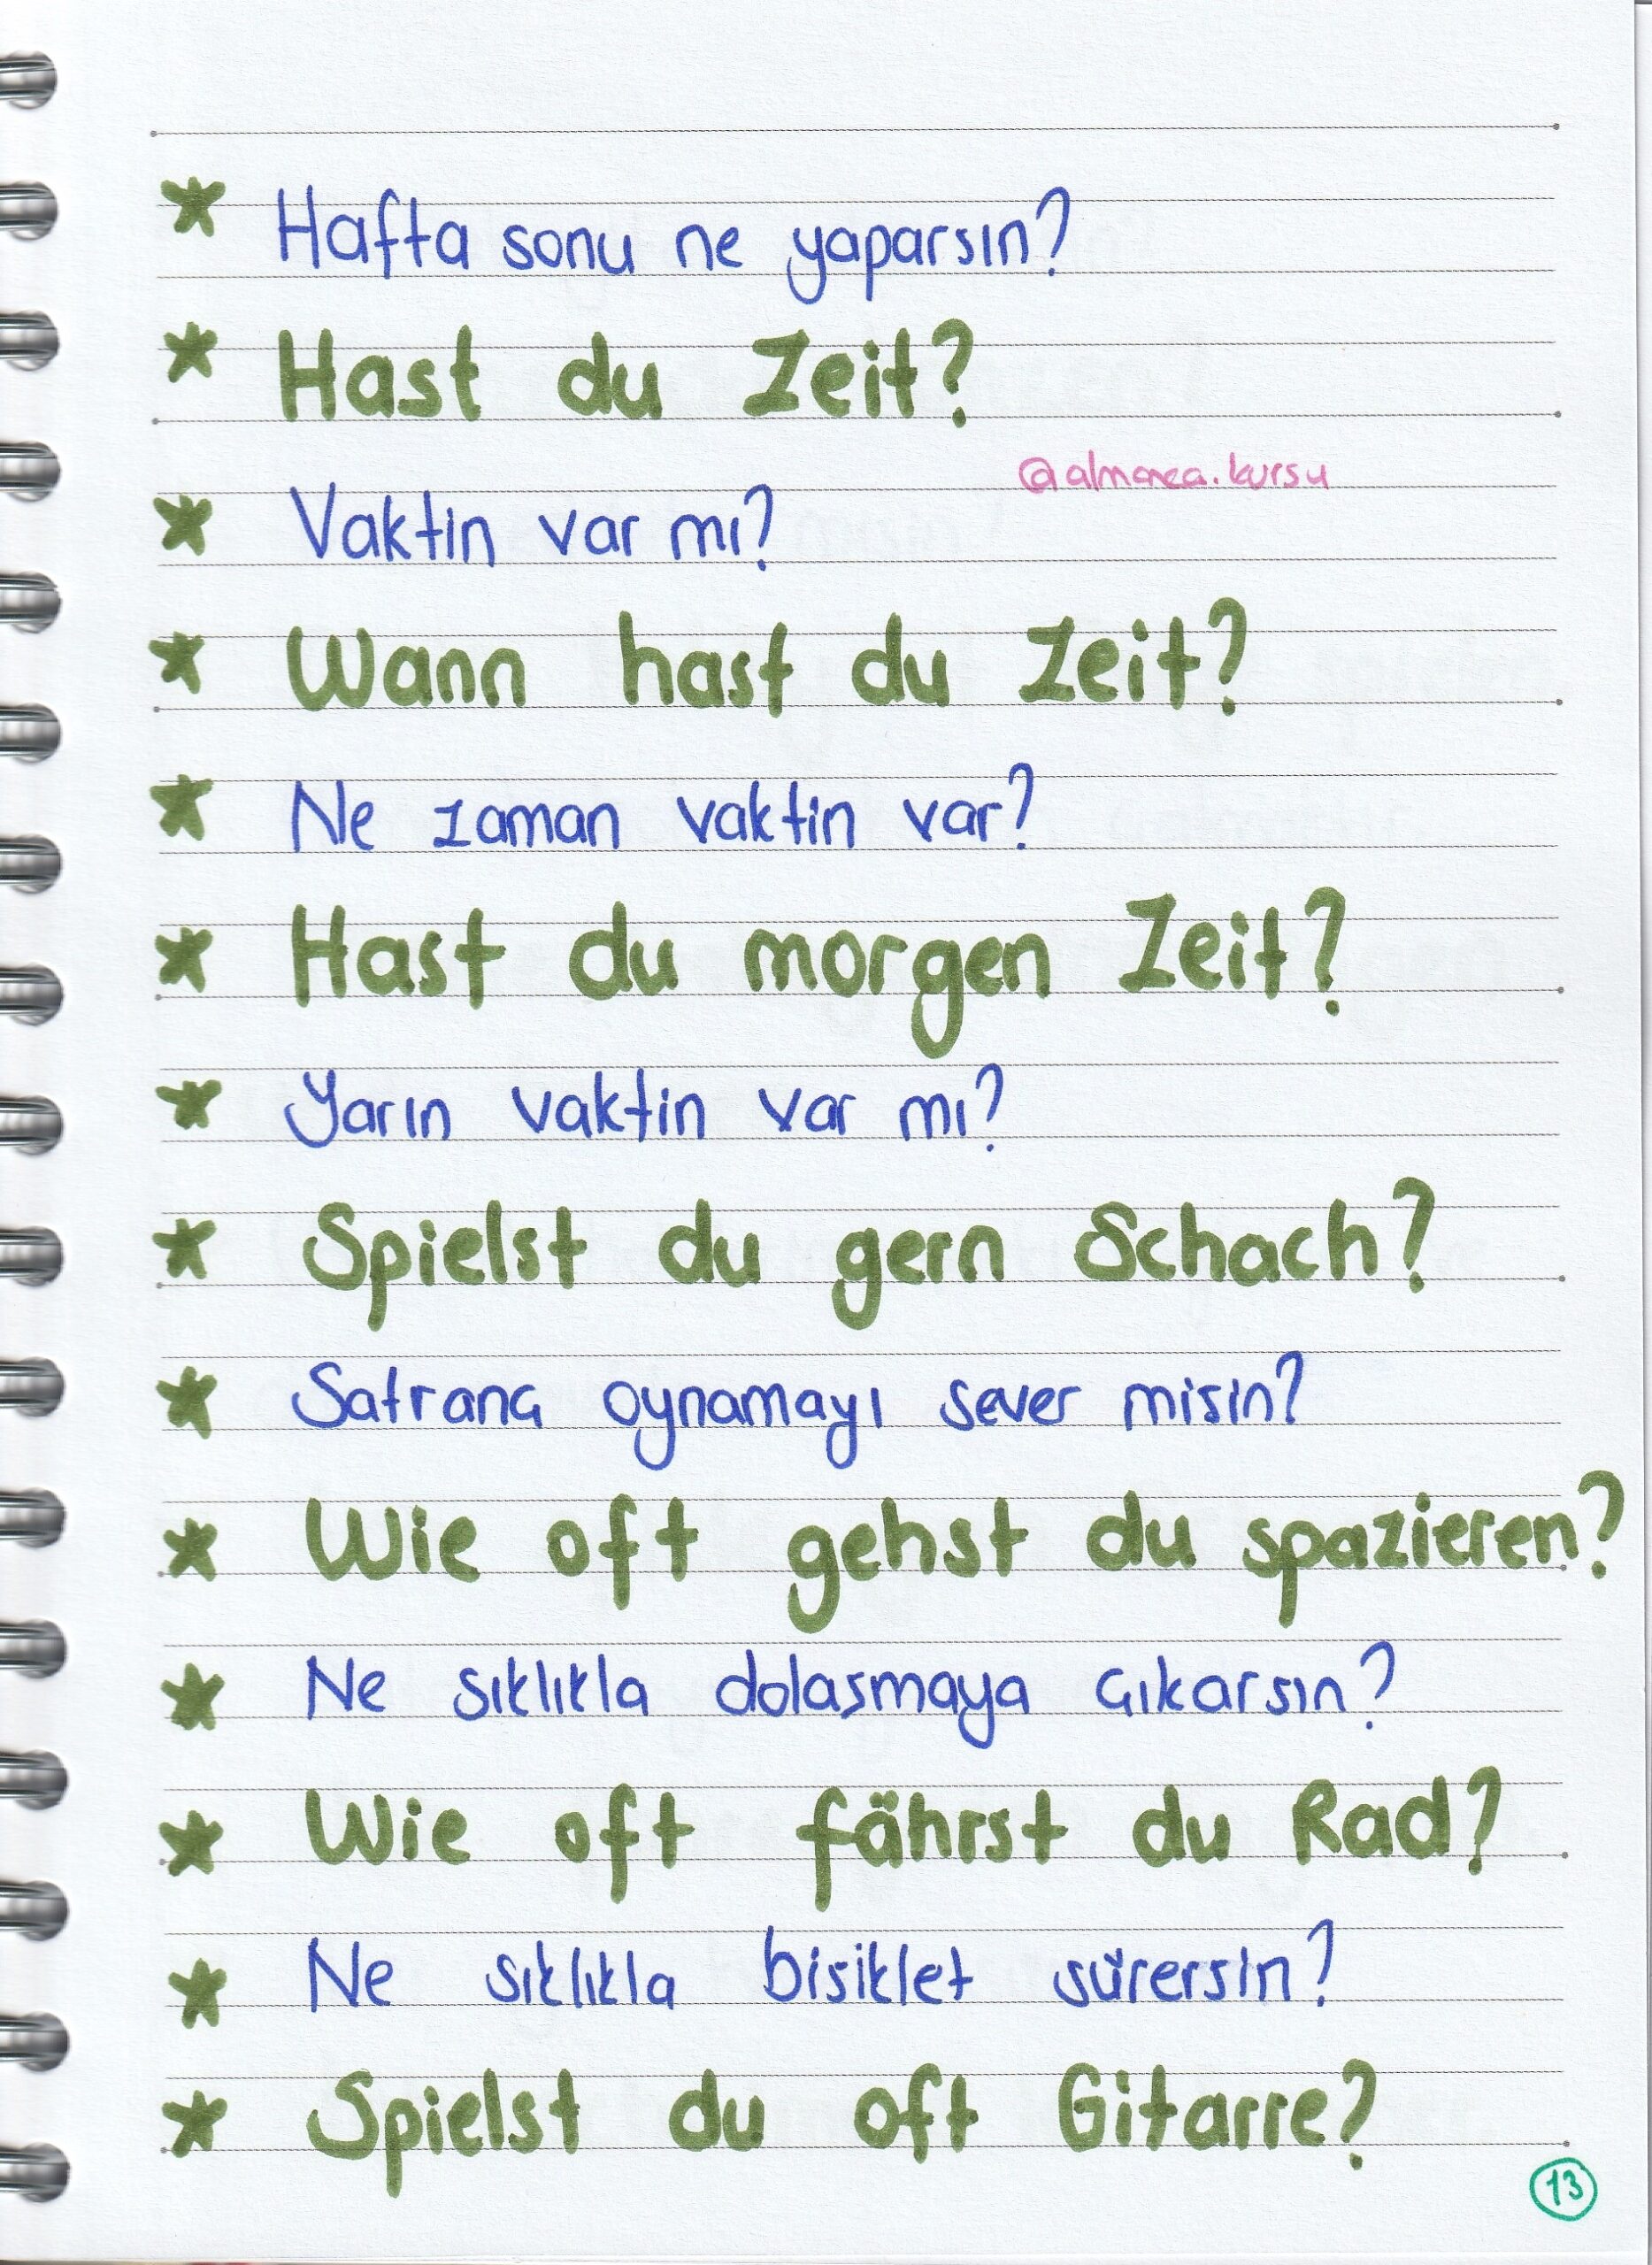 * Hafta sonu ne yaparsın?
* Hast du Zeit?
@almanca.kursu
* Vaktin var mı?
* Wann hast du Zeit?
* Ne zaman vaktin var?
* Hast du morgen Zeit?
* Yarın vaktin var mı?
* Spielst du gern Schach?
* Satranç oynamayı sever misin?
* Wie oft gehst du spazieren?
* Ne sıklıkla dolaşmaya çıkarsın?
* Wie oft fährst du Rad?
* Ne sıklıkla bisiklet sürersin?
* Spielst du oft Gitarre?
13